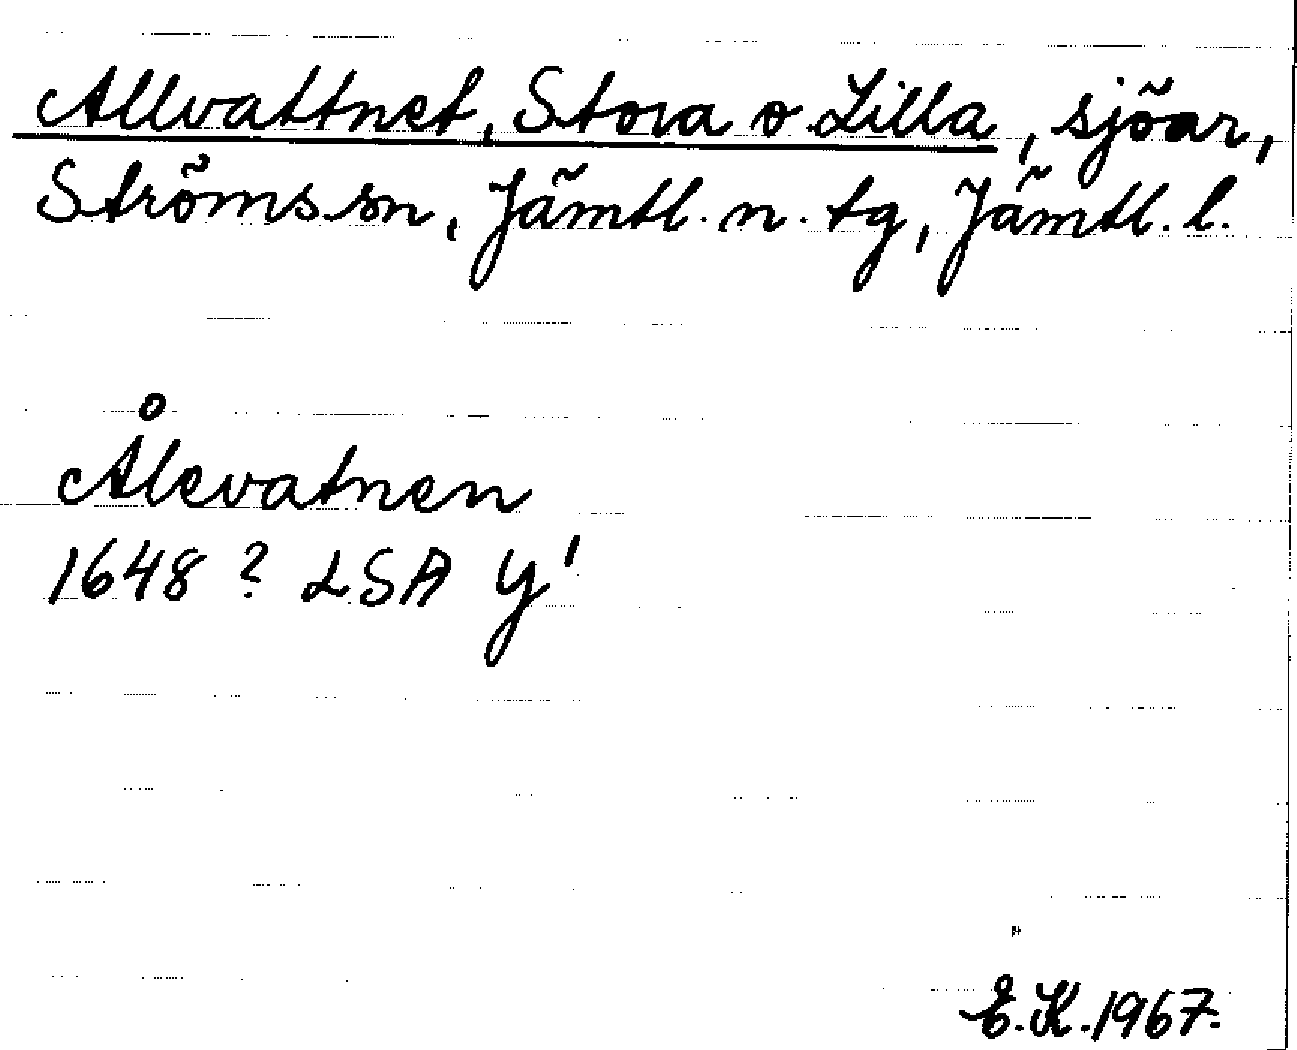 Allvattnet, Stora o Lilla, sjöar,
Ströms sn, Jämtl. n. tg, Jämtl. l.
Ålevatnen
1648 ? LSA Y¹
E.K. 1967.